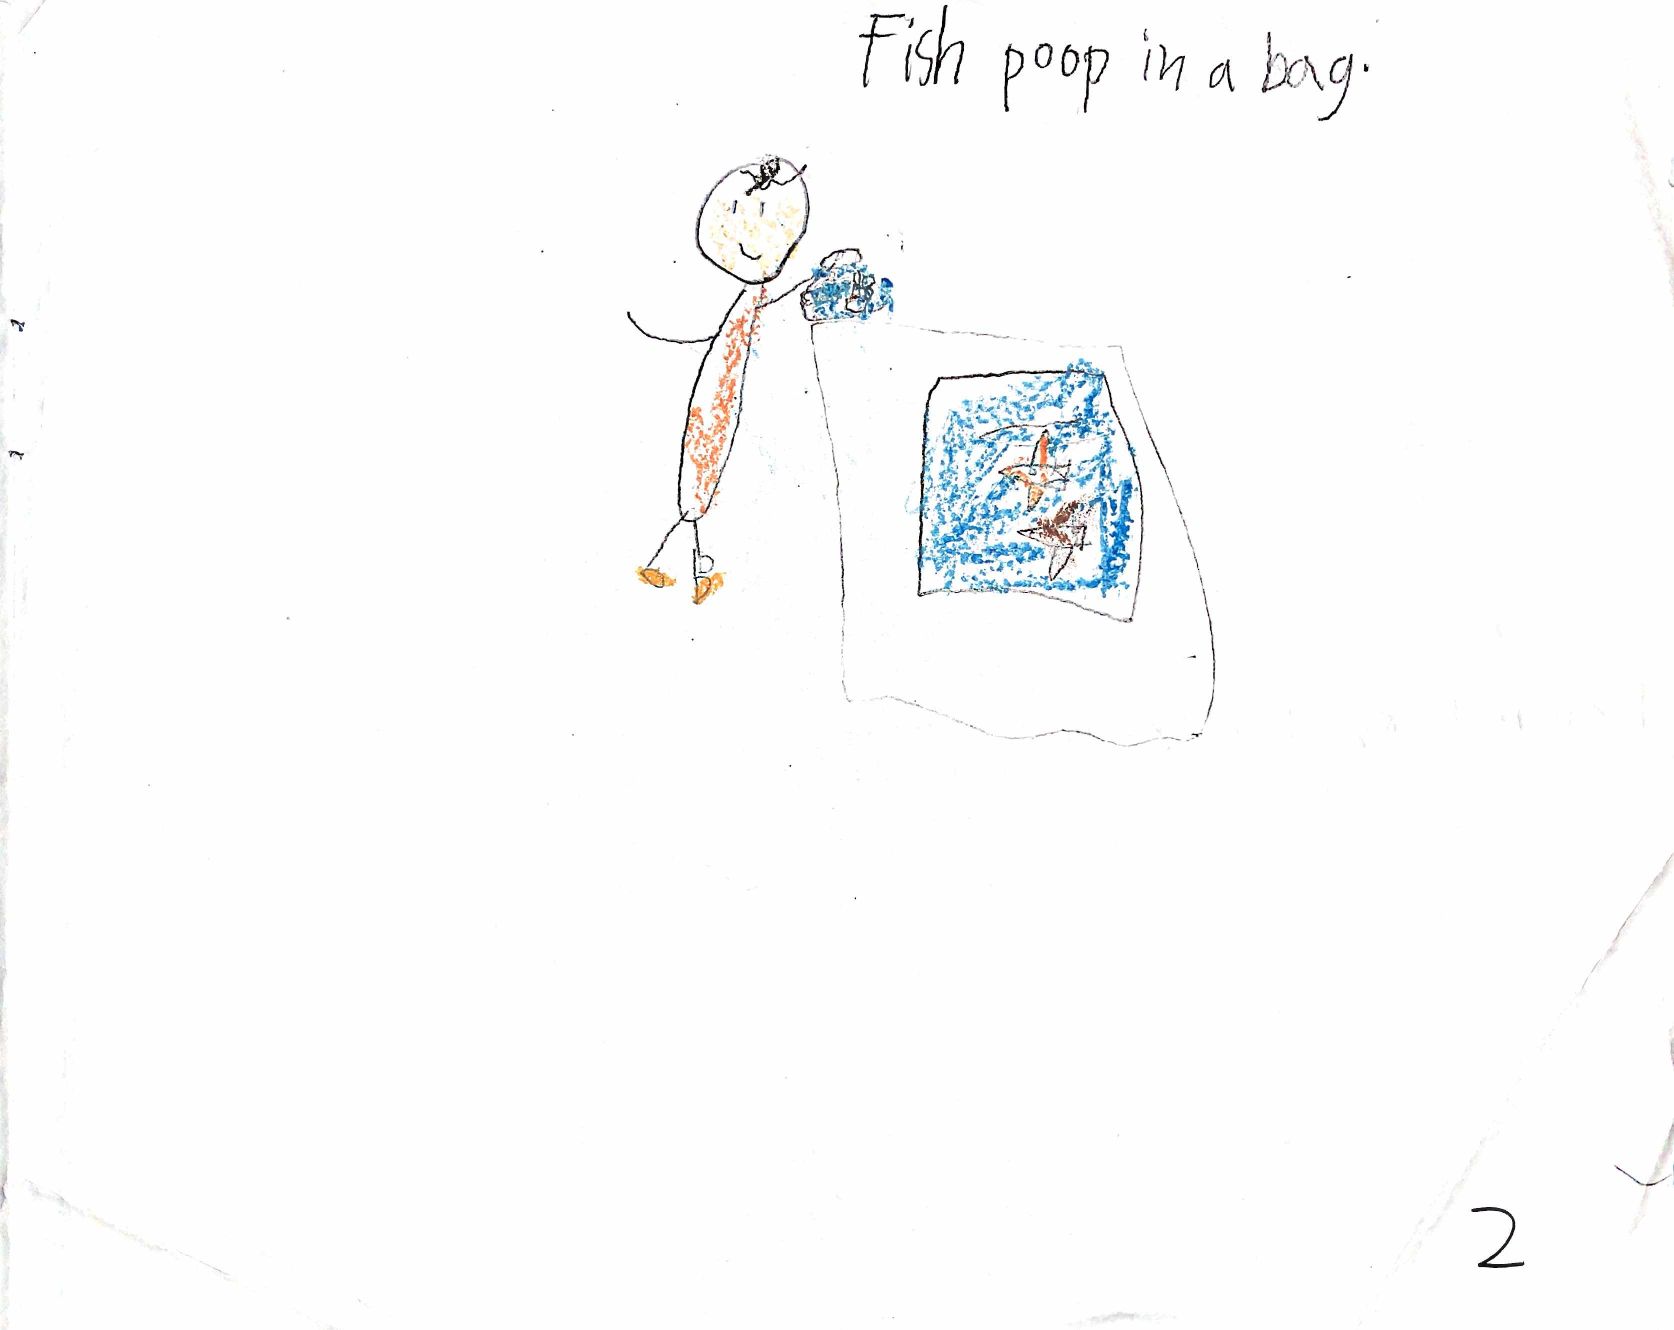 Fish poop in a bag.
2